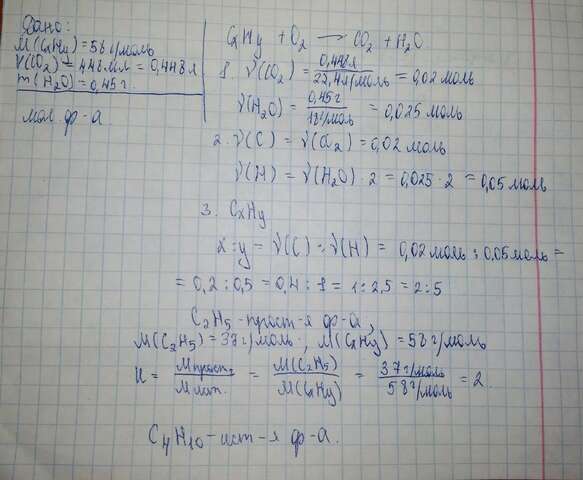 Дано:
M(CxHy)=58 г/моль
V(CO2)=448мл = 0,448л
m(H2O)=0,45г.
мол ф-а
CxHy + O2 → CO2 + H2O
1. ν(CO2) = 0,448л / 22,4л/моль = 0,02 моль
ν(H2O) = 0,45г / 18г/моль = 0,025 моль
2. ν(C) = ν(CO2) = 0,02 моль
ν(H) = ν(H2O)·2 = 0,025·2 = 0,05 моль
3. CxHy
x:y = ν(C) : ν(H) = 0,02 моль : 0,05 моль =
= 0,2 : 0,5 = 0,4 : 1 = 1 : 2,5 = 2:5
C2H5 - прост-я ф-а,
M(C2H5) = 37 г/моль; M(CxHy) = 58 г/моль
= M(C2H5) / M(CxHy) = 37 г/моль / 58 г/моль = 2.
C4H10 - ист-я ф-а.